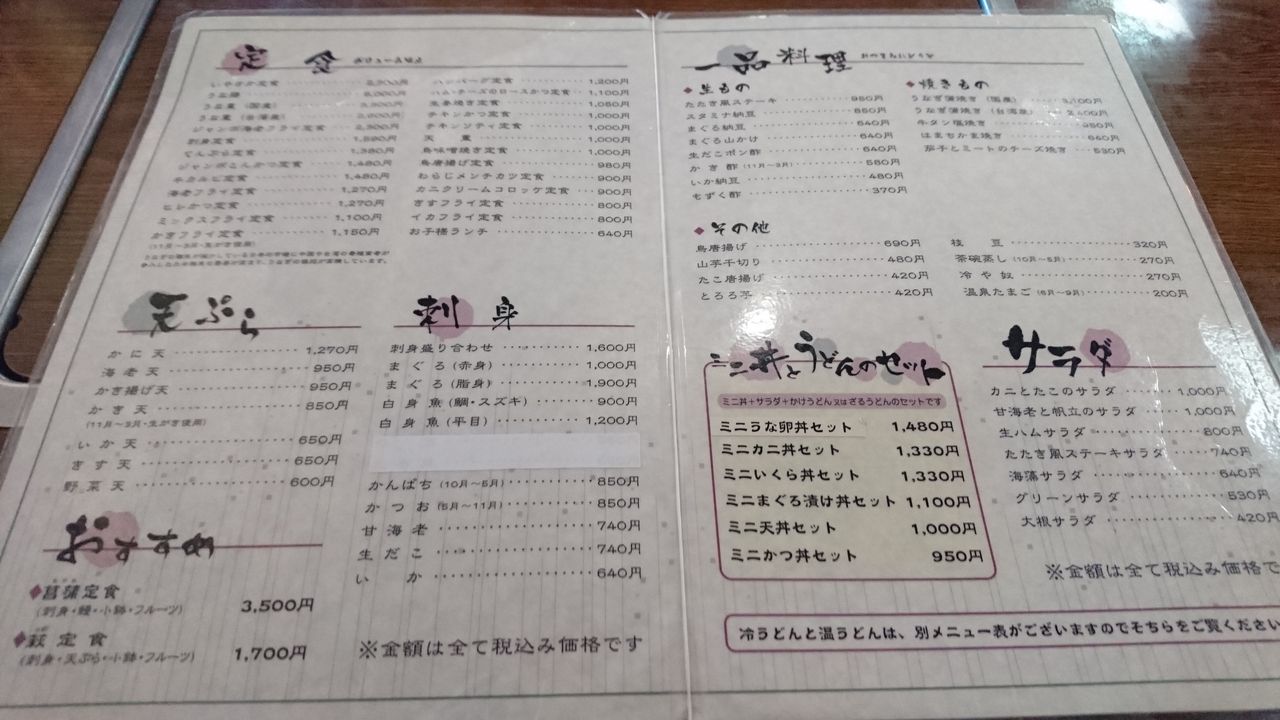 定食
いやさか定食 2,500円
うな重 (国産) 3,300円
うな重 (台湾産)
ジャンボ海老フライ定食 2,300円
刺身定食 1,590円
てんぷら定食 1,380円
ジャンボとんかつ定食 1,480円
牛カルビ定食 1,480円
海老フライ定食 1,270円
ヒレかつ定食 1,270円
ミックスフライ定食 1,100円
かきフライ定食 1,150円
(11月〜3月・生がき使用)
ハンバーグ定食 1,200円
ハム・チーズのロースかつ定食 1,100円
生姜焼き定食 1,050円
チキンかつ定食 1,000円
チキンソティ定食 1,000円
天重 1,000円
鳥味噌焼き定食 1,000円
鳥唐揚げ定食 980円
わらじメンチカツ定食 900円
カニクリームコロッケ定食 900円
きすフライ定食 800円
イカフライ定食 800円
お子様ランチ 640円
天ぷら
かに天 1,270円
海老天 950円
かき揚げ天 950円
かき天 850円
(11月〜3月・生がき使用)
いか天 650円
きす天 650円
野菜天 600円
おすすめ
菖蒲定食
(刺身・鰻・小鉢・フルーツ) 3,500円
萩定食
(刺身・天ぷら・小鉢・フルーツ) 1,700円
刺身
刺身盛り合わせ 1,600円
まぐろ(赤身) 1,000円
まぐろ(脂身) 1,900円
白身魚(鯛・スズキ) 900円
白身魚(平目) 1,200円
かんぱち(10月〜5月) 850円
かつお(5月〜11月) 850円
甘海老 740円
生だこ 740円
いか 640円
※金額は全て税込み価格です
一品料理
生もの
たたき風ステーキ 950円
スタミナ納豆 850円
まぐろ納豆 640円
まぐろ山かけ 640円
生だこポン酢 640円
かき酢(11月〜3月) 580円
いか納豆 480円
もずく酢 370円
焼きもの
うなぎ蒲焼き (国産) 3,100円
うなぎ蒲焼き (台湾産) 2,400円
牛タン塩焼き 950円
はまちかま焼き 640円
茄子とミートのチーズ焼き 530円
その他
鳥唐揚げ 690円
山芋千切り 480円
たこ唐揚げ 420円
とろろ芋 420円
枝豆 320円
茶碗蒸し(10月〜5月) 270円
冷や奴 270円
温泉たまご(6月〜9月) 200円
ミニ丼とうどんのセット
ミニ丼+サラダ+かけうどん又はざるうどんのセットです
ミニうな卵丼セット 1,480円
ミニカニ丼セット 1,330円
ミニいくら丼セット 1,330円
ミニまぐろ漬け丼セット 1,100円
ミニ天丼セット 1,000円
ミニかつ丼セット 950円
サラダ
カニとたこのサラダ 1,000円
甘海老と帆立のサラダ 1,000円
生ハムサラダ 800円
たたき風ステーキサラダ 740円
海藻サラダ 640円
グリーンサラダ 530円
大根サラダ 420円
※金額は全て税込み価格で
冷うどんと温うどんは、別メニュー表がございますのでそちらをご覧ください